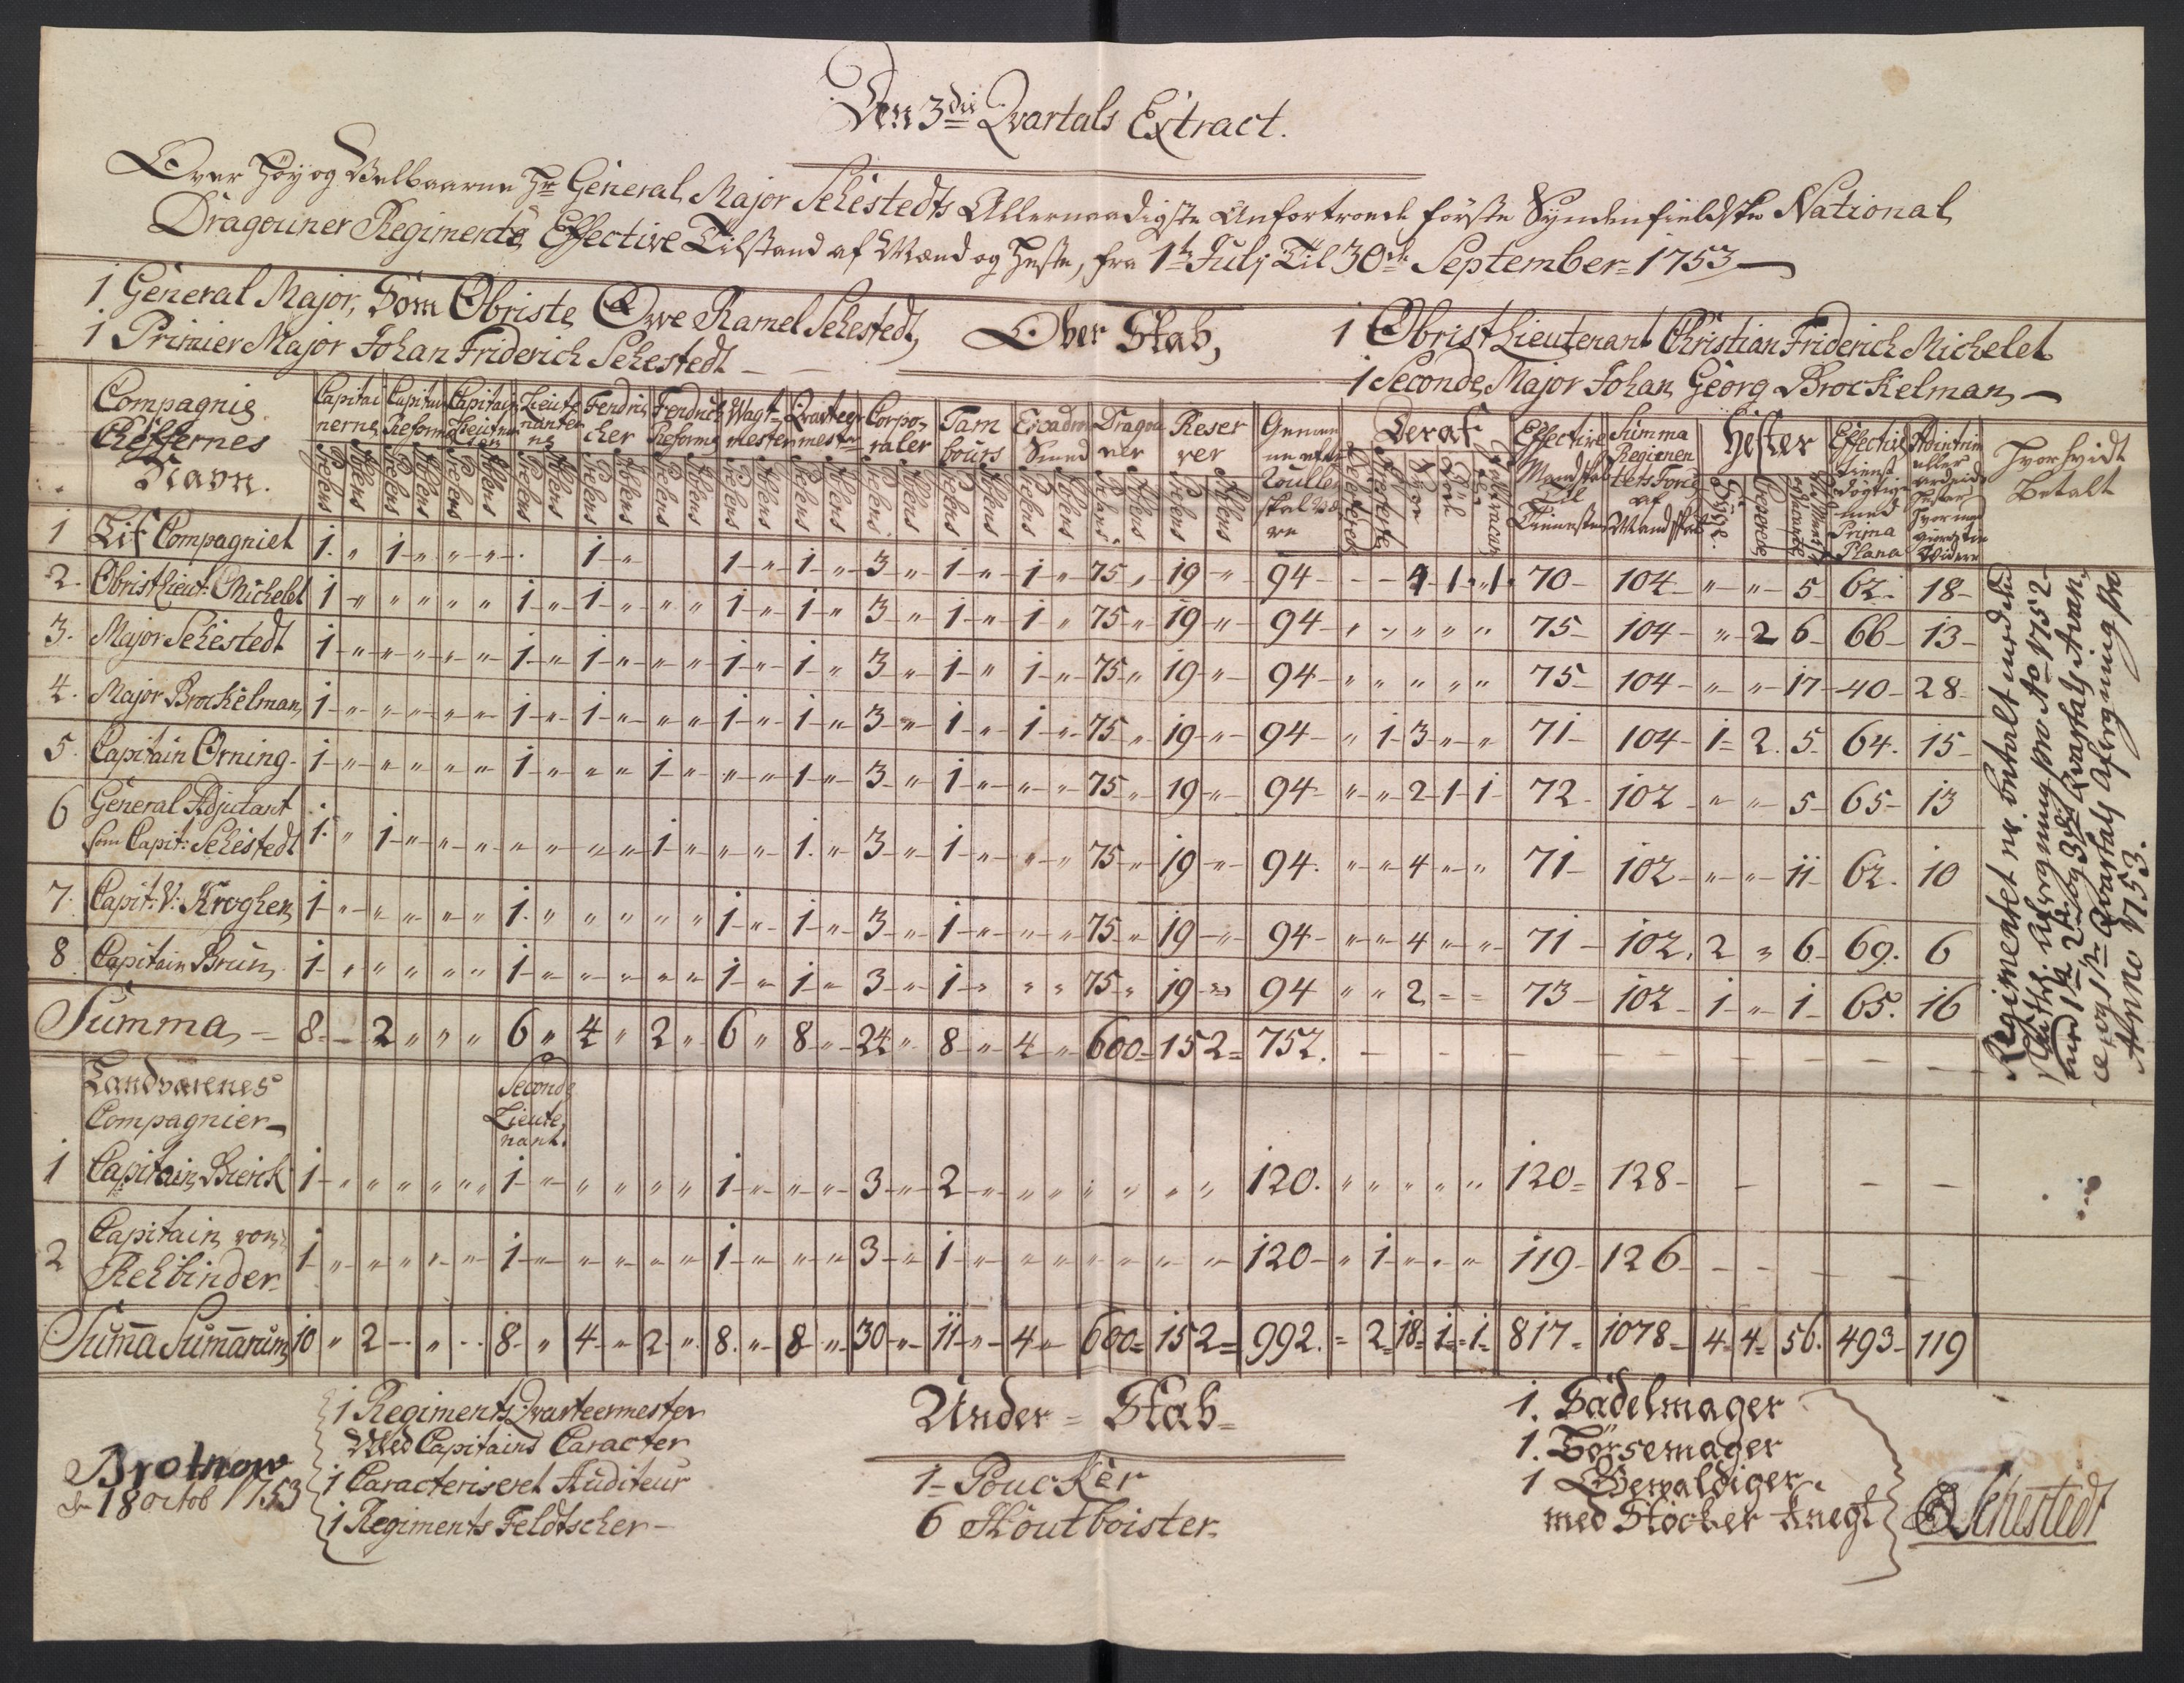 Den 3die Qvartals Extract.
Over Høy og Velbaarne Hr General Major Sehestedts Allernaadigste Anfortroede første Syndenfieldske National
Dragouner Regiments Effective Tilstand af Mænd og Heste, fra 1te July Til 30te September 1753
1 General Major, Som Obriste, Owe Ramel Sehestedt,
1 Primier Major Johan Friderich Sehestedt
Ober Stab,
1 Obrist Lieutenant Christian Friderich Michelet
1 Seconde Major Johan Georg Brockelman,
Compagnie Cheffernes Navn.
Capitainerne Capitain Reforme Capitain Lieutnanten Lieutenanterne Fendricher Fendrich Reforme Wagtmester Qvarteermester Corporaler Tambours Escadron Smed Dragouner Reserver Gemene efter Roullen skal være Deraf Effective Mandskab til Tienesten Summa Regimentets Force af Mandskab Hester Effective Tienst dögtige med Prima Plana Hvorvidt Betalt
Præsens Absens
1 Lif Compagniet 1. " 1 " " " " 1 " 1 " 1 " 3 " 1 " 1 " 75 " 19 " 94 - - 4 1 " 1 70 104 " " 5 62 18
2. Obrist Lieut: Michelet 1 " " " " " 1 " 1 " " " 1 " 1 " 3 " 1 " 1 " 75 " 19 " 94 " " " " " 75 104 " 2 6 66 13
3. Major Sehestedt 1 " " " " " 1 " 1 " " " 1 " 1 " 3 " 1 " 1 " 75 " 19 " 94 " " " " " 75 104 " " 17 40 28
4. Major Brockelman, 1 " " " " " 1 " 1 " " " 1 " 1 " 3 " 1 " 1 " 75 " 19 " 94 " 1 3 " " 71 104 1 2. 5 64. 15
5. Capitain Örning 1 " " " " " 1 " " " 1 " " " 1 " 3 " 1 " " " 75 " 19 " 94 " " 2 1 1 72 102 " " 5 65 13
6 General Adjutant
som Capit: Sehestedt 1. " 1 " " " " " " " 1 " " " 1. " 3 " 1 " " " 75 " 19 " 94. " " 4 " " 71 102 " " 11 62. 10
7. Capit: V: Kroghen, 1 " " " " " 1. " " " " " 1 " 1 " 3 " 1 " " " 75 " 19 " 94 " " 4 " " 71 102. 2 " 6 69. 6
8 Capitain Brun, 1 " " " " " 1 " " " " " 1 " 1 " 3 " 1 " " " 75 " 19 " 94 " " 2 = = 73 102 1 " 1 65. 16
Summa, 8 2 " " " 6 " 4 " 2 " 6 " 8 " 24 " 8 " 4 " 600 152 752.
Landværenes
Compagnier
Seconde
Lieute,
nant.
1 Capitain, Bierch 1 " " " " " 1 " " " " " 1 " " " 3 " 2 " " " " " " " 120. " " " " " 120 128
2 Capitain, von
Rehbinder 1 " " " " " 1 " " " " " 1 " " " 3 " 1 " " " " " " " 120 " 1 " " " 119 126
Suma Sumarum, 10 " 2 " 8 " 4 " 2 " 8. " 8 " 30 " 11 " 4 " 600 152 992. = 2 18 1 1 817 1078 4 4 56. 493 119
Regimentet er betalt med
pro Ao 1752
med 1te 2de og 3die Qvartals Avan,
ce, og 1te Qvartals Afregning pro
Anno 1753.
Brotnow
den 18 octob 1753
1 Regiments Qvarteermester
Med Capitains Caracter
1 Caracteriseret Auditeur
1 Regiments Feldtscher
Under = Stab
1 Poucker
6 Houtboister
1. Sadelmager
1. Börsemager
1 Gewaldiger
med Stocker Knegt
O Sehestedt